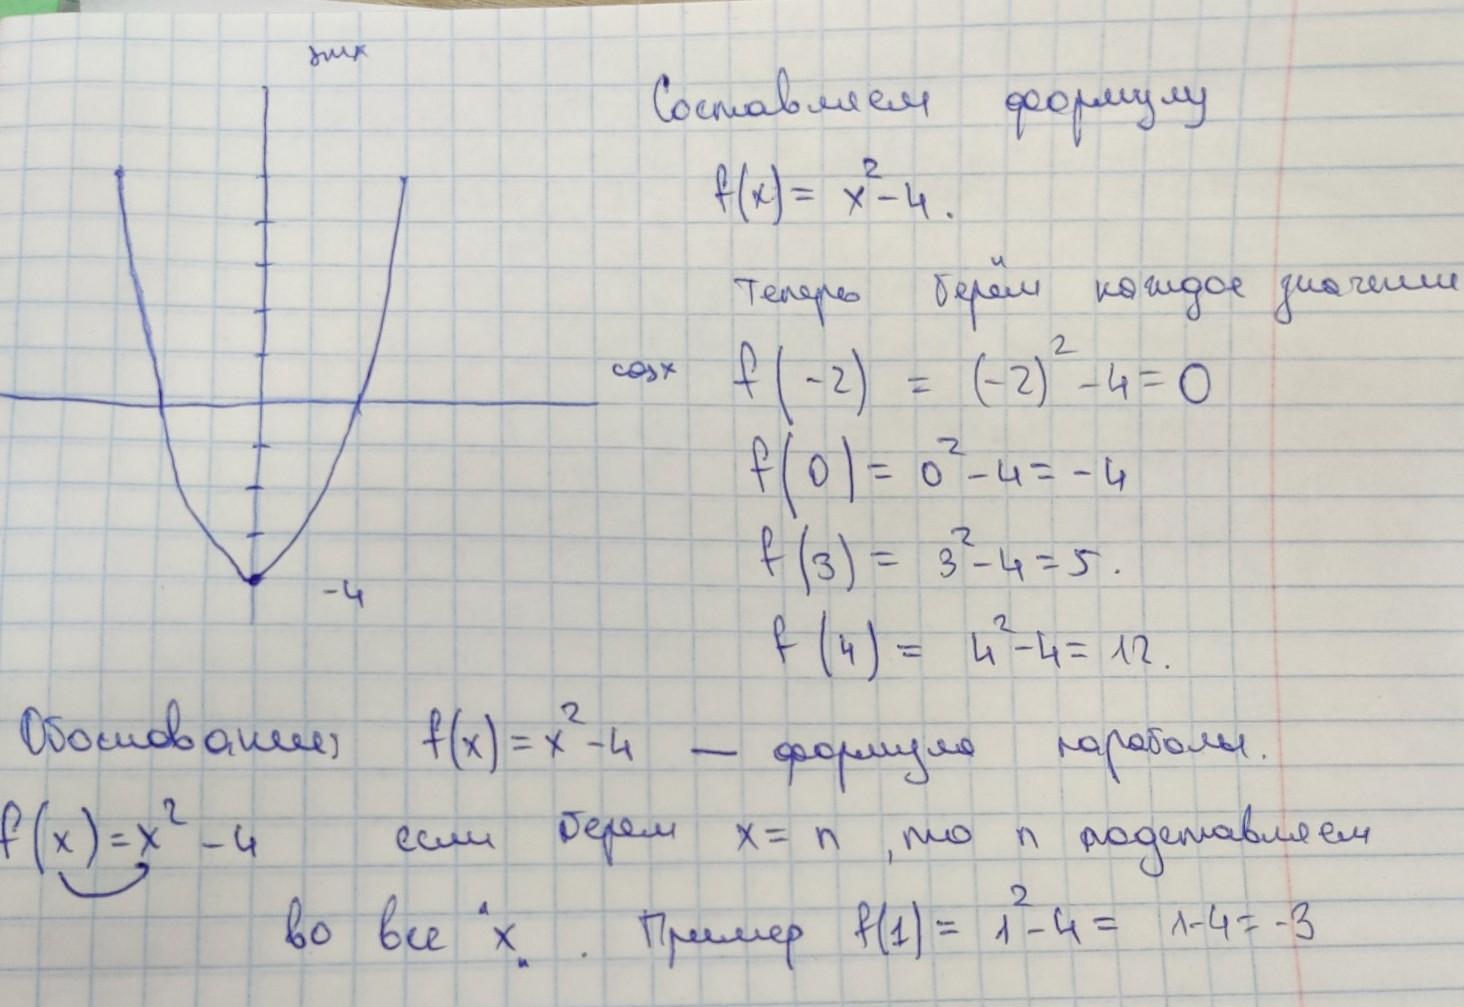 sinx
Составляем формулу
f(x) = x² - 4.
Теперь берём каждое значение
cosx
f(-2) = (-2)² - 4 = 0
f(0) = 0² - 4 = -4
f(3) = 3² - 4 = 5.
-4
f(4) = 4² - 4 = 12.
Обоснование: f(x) = x² - 4 — формула параболы.
f(x) = x² - 4 если берем x = n, то n подставляем
во все "x". Пример f(1) = 1² - 4 = 1 - 4 = -3